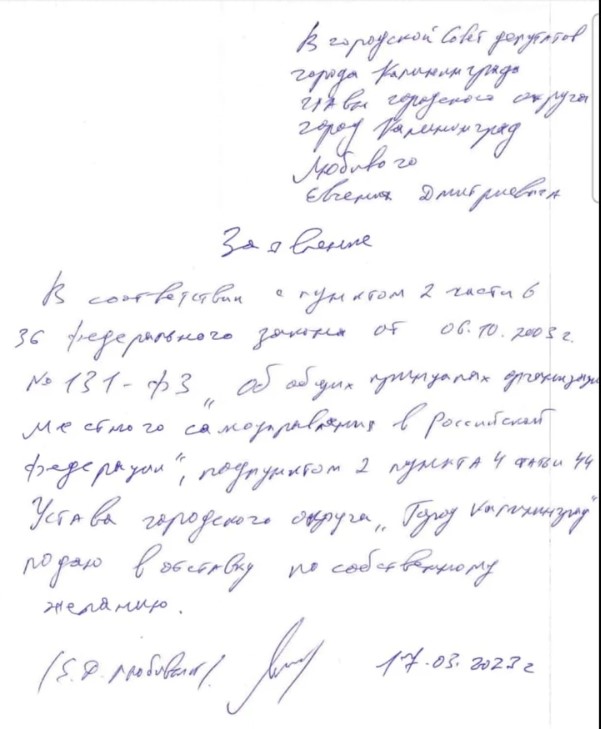 В городской Совет депутатов
города Калининграда
главы городского округа
город Калининград
Любивого
Евгения Дмитриевича
Заявление
В соответствии с пунктом 2 части 6
36 федерального закона от 06.10.2003 г.
№ 131-ФЗ „Об общих принципах организации
местного самоуправления в Российской
федерации", подпунктом 2 пункта 4 статьи 44
Устава городского округа „Город Калининград"
подаю в отставку по собственному
желанию.
/Е.Д. Любивый/. 17.03.2023 г